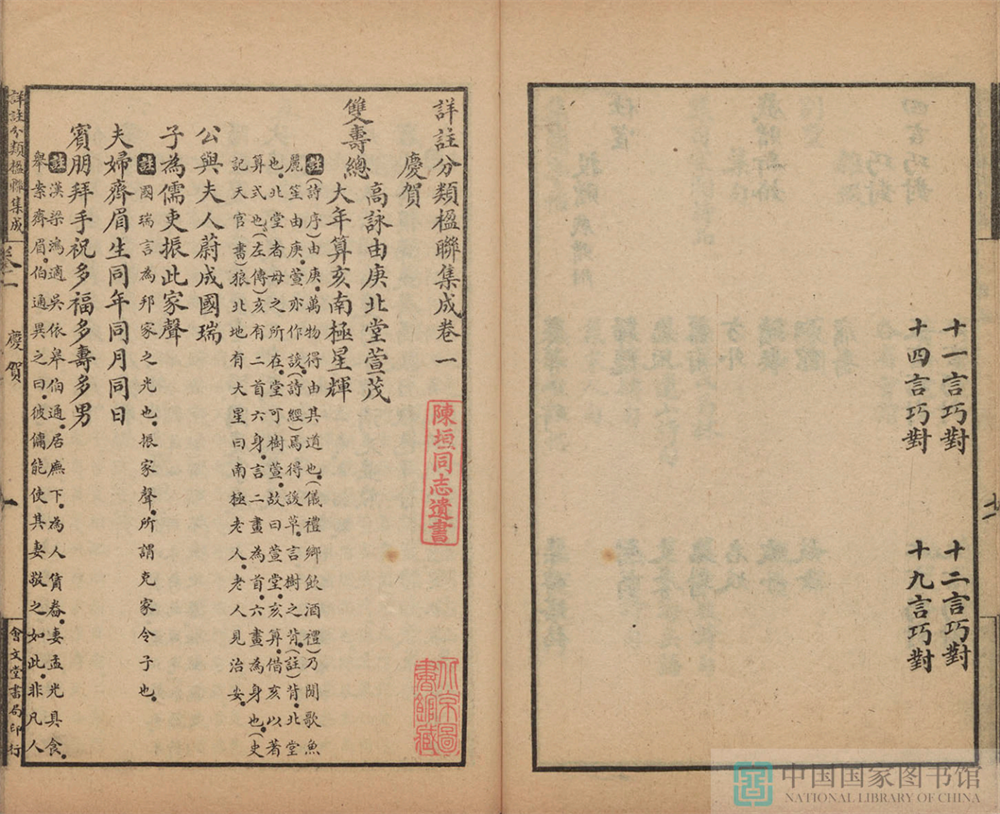 十一言巧對　十二言巧對
十四言巧對　十九言巧對
詳註分類楹聯集成卷一
慶賀
雙壽總
高詠由庚北堂萱茂
大年算亥南極星輝
註(詩序)由庚。萬物得由其道也。(儀禮鄉飲酒禮)乃閒歌魚
麗笙由庚。萱亦作諼(詩經)焉得諼草。言樹之背。(註)背。北堂
也。北堂者母之所在。堂可樹萱。故曰萱堂。亥算。借亥以著
算式也。(左傳)亥有二首六身。言二畫為首。六畫為身也。(史
記天官書)狼北地有大星曰南極老人。老人見治安。
公與夫人蔚成國瑞
子為儒吏振此家聲
註國瑞言為邦家之光也。振家聲。所謂克家令子也。
夫婦齊眉生同年同月同日
賓朋拜手祝多福多壽多男
註漢梁鴻適吳依皋伯通。居廡下。為人賃舂。妻孟光具食。
舉案齊眉。伯通異之曰。彼傭能使其妻敬之如此。非凡人
詳註分類楹聯集成
慶賀
一
會文堂書局印行
陳垣同志遺書
中国国家图书馆
NATIONAL LIBRARY OF CHINA